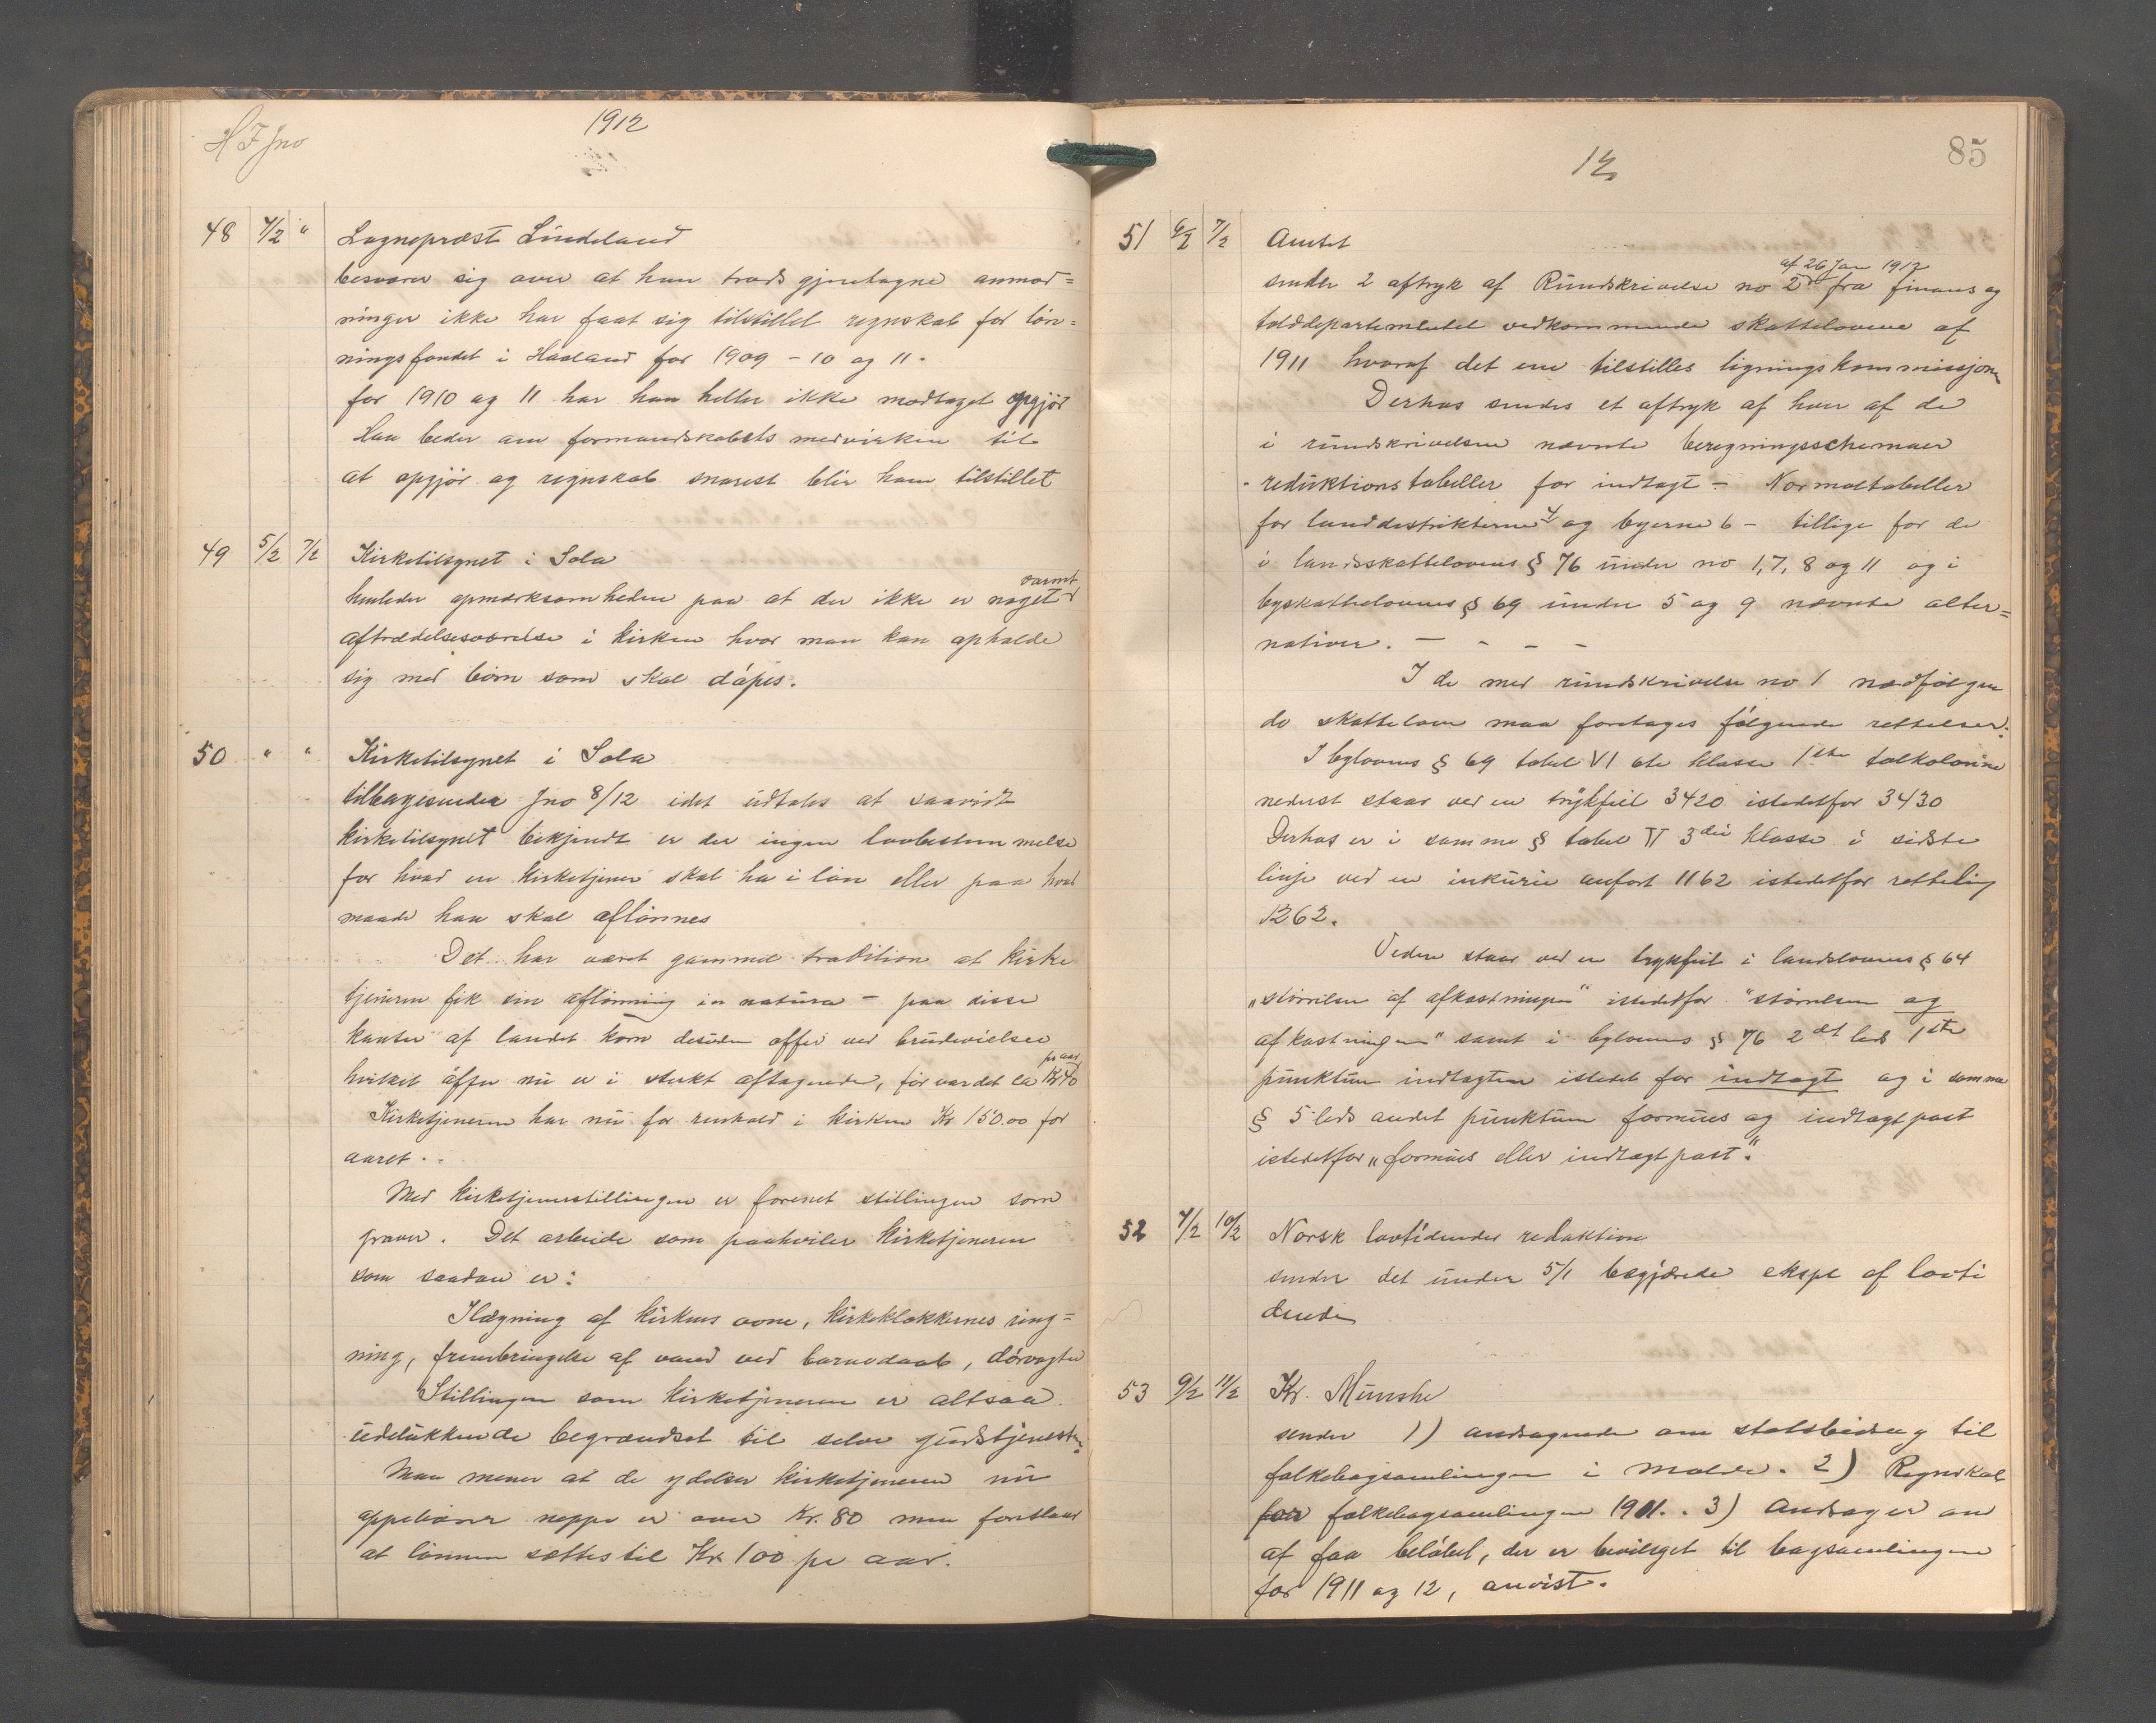 H F Jno
1912
48 4/2 " Sogneprest Lindeland
besværer sig over at han trods gjentagne anmod=
ninger ikke har faat sig tilstillet regnskab for løn=
ningsfondet i Haaland for 1909 - 10 og 11.
for 1910 og 11 har han heller ikke modtaget opgjør
Han beder om formandskabets medvirken til
at opgjør og regnskab snarest blir ham tilstillet
49 5/2 7/2 Kirketilsynet i Sola
henleder opmerksomheden paa at der ikke er noget varmt
aftrædelsesværelse i kirken hvor man kan opholde
sig med børn som skal døpes.
50 " " Kirketilsynet i Sola
tilbagesender Jno 8/12 idet udtales at saavidt
kirketilsynet bekjendt er der ingen lovbestemmelse
for hvad en kirketjener skal ha i løn eller paa hvad
maade han skal aflønnes
Det har været gammel tradition at kirke
tjeneren fik sin aflønning in natura - paa disse
kanter af landet kom desuden offer ved brudevielser
hvilket offer nu er i sterkt aftagende, før var det ca Kr 40 pr aar
Kirketjeneren har nu for renhold i kirken Kr 150.00 for
aaret..
Med kirketjenerstillingen er forenet stillingen som
graver. Det arbeide som paahviler kirketjeneren
som saadan er:
Ilægning af kirkens ovne, kirkeklokkernes ring=
ning, frembringelse af vand ved barnedaab, dørvagter
Stillingen som kirketjeneren er altsaa
udelukkende begrændset til selve gudstjenesten
Man mener at de ydelser kirketjeneren nu
oppebærer neppe er over Kr. 80 men foreslaar
at lønnen sættes til Kr 100 pr aar.
85
12
51 6/2 7/2 Amtet
sender 2 aftryk af Rundskrivelse no 2 af 26 Jan 1912 fra finans og
tolddepartementet vedkommende skattelovene af
1911 hvoraf det ene tilstilles ligningskommissjonen
Derhos sendes et aftryk af hver af de
i rundskrivelsen nævnte beregningsschemaer
- reduktionstabeller for indtægt - Normaltabeller
for landdistrikterne 4 og byerne 6 - tillige for de
i landsskattelovens § 76 under no 1, 7, 8 og 11 og i
byskattelovens § 69 under 5 og 9 nævnte alter=
nativer. - - - -
I de med rundskrivelse no 1 nedfølgen
de skattelove maa foretages følgende rettelser:
I bylovens § 69 tabel VI 6te klasse 1ste talkolonne
nederst staar ved en trykfeil 3420 istedetfor 3430
Derhos er i samme § tabel VI 3die klasse i sidste
linje ved en inkurie anført 1162 istedetfor rettelig
1262.
Videre staar ved en trykfeil i landslovens § 64
„størrelsen af afkastningen" istedetfor "størrelsen og
afkastningen" samt i bylovens § 76 2det led 1ste
punktum indtægten istedet for indtægt og i samme
§ 5 leds andet punktum formues og indtægtpost
istedetfor „formues eller indtægtpost".
52 7/2 10/2 Norsk lovtidendes redaktion
sender det under 5/1 begjærede ekspl af lovti
dende
53 9/2 11/2 Kr. Munshe
sender 1) andragende om statsbidrag til
folkebogsamlingen i Malde. 2) Regnskab
for folkebogsamlingen 1911.. 3) Andrager om
at faa beløbet, der er bevilget til bogsamlingen
for 1911 og 12, anvist.